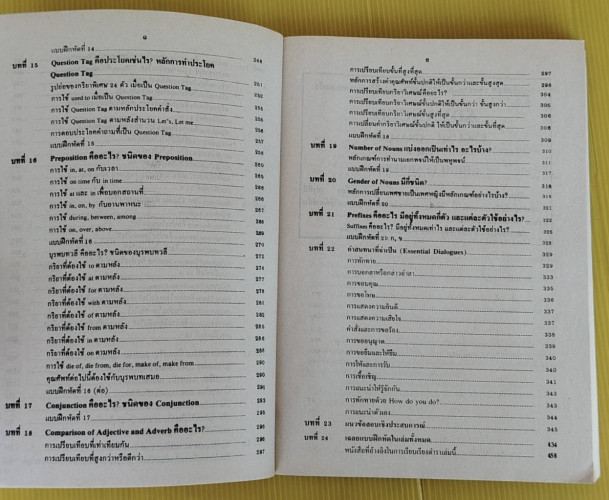 แบบฝึกหัดที่ 14
บทที่ 15 Question Tag คือประโยคเช่นไร? หลักการทำประโยค
Question Tag
รูปย่อของกริยาพิเศษ 24 ตัว เมื่อเป็น Question Tag
การใช้ used to เมื่อเป็น Question Tag
การใช้ Question Tag ตามหลักประโยคคำสั่ง
การใช้ Question Tag ตามหลังสำนวน Let's, Let me
การตอบประโยคคำถามที่เป็น Question Tag
แบบฝึกหัดที่ 15
บทที่ 16 Preposition คืออะไร? ชนิดของ Preposition
การใช้ in, at, on กับเวลา
การใช้ on time กับ in time
การใช้ at และ in เพื่อบอกสถานที่
การใช้ in, on, by กับยานพาหนะ
การใช้ during, between, among
การใช้ on, over, above
แบบฝึกหัดที่ 16
บุรพบทวลี คืออะไร? ชนิดของบุรพบทวลี 270
กริยาที่ต้องใช้ to ตามหลัง
กริยาที่ต้องใช้ at ตามหลัง
กริยาที่ต้องใช้ for ตามหลัง
กริยาที่ต้องใช้ with ตามหลัง
กริยาที่ต้องใช้ of ตามหลัง
กริยาที่ต้องใช้ from ตามหลัง
กริยาที่ต้องใช้ in ตามหลัง
กริยาที่ต้องใช้ on ตามหลัง
การใช้ die of, die from, die for, make of, make from
คุณศัพท์ต่อไปนี้ต้องใช้กับบุรพบทเสมอ 290
แบบฝึกหัดที่ 16 (ต่อ)
บทที่ 17 Conjunction คืออะไร? ชนิดของ Conjunction
แบบฝึกหัดที่ 17
บทที่ 18 Comparison of Adjective and Adverb คืออะไร?
การเปรียบเทียบที่เท่าเทียมกัน 296
การเปรียบเทียบที่สูงกว่าหรือดีกว่า 297
การเปรียบเทียบขั้นที่สูงที่สุด 297
หลักการสร้างคำคุณศัพท์ขั้นปกติให้เป็นขั้นกว่าและขั้นสูงสุด 298
การเปรียบเทียบกริยาวิเศษณ์คืออะไร? 304
การเปรียบเทียบกริยาวิเศษณ์ขั้นปกติให้เป็นขั้นกว่า ขั้นสูงกว่า 305
การเปรียบเทียบกริยาวิเศษณ์ขั้นสูงที่สุด 306
การเปลี่ยนคำกริยาวิเศษณ์ขั้นปกติ ให้เป็นขั้นกว่าและขั้นที่สุด 306
แบบฝึกหัดที่ 18
บทที่ 19 Number of Nouns แบ่งออกเป็นเท่าไร อะไรบ้าง? 310
หลักเกณฑ์การทำนามเอกพจน์ให้เป็นพหูพจน์ 311
แบบฝึกหัดที่ 19 317
บทที่ 20 Gender of Nouns มีกี่ชนิด? 318
หลักการเปลี่ยนเพศชายเป็นเพศหญิงมีหลักเกณฑ์อย่างไรบ้าง? 318
แบบฝึกหัดที่ 20
บทที่ 21 Prefixes คืออะไร มีอยู่ทั้งหมดกี่ตัว และแต่ละตัวใช้อย่างไร? 322
Suffixes คืออะไร? มีอยู่ทั้งหมดเท่าไร และแต่ละตัวใช้อย่างไร? 325
แบบฝึกหัดที่ 21 ก, ข 328
บทที่ 22 คำสนทนาที่จำเป็น (Essential Dialogues) 329
การทักทาย 329
การบอกลาหรือกล่าวอำลา
การขอบคุณ
การขอโทษ 336
การแสดงความยินดี 337
การแสดงความเสียใจ 337
คำสั่งและการขอร้อง 338
การขออนุญาต 339
การขอยืมและให้ยืม 340
การให้และการรับ 340
การเชื้อเชิญ 341
การแนะนำให้รู้จักกัน 341
การทักทายด้วย How do you do? 342
การแนะนำตัวเอง 343
บทที่ 23 แนวข้อสอบเชิงประสบการณ์ 345
บทที่ 24 เฉลยแบบฝึกหัดในเล่มทั้งหมด 434
หนังสือที่อ้างอิงในการเรียบเรียงตำราเล่มนี้ 458